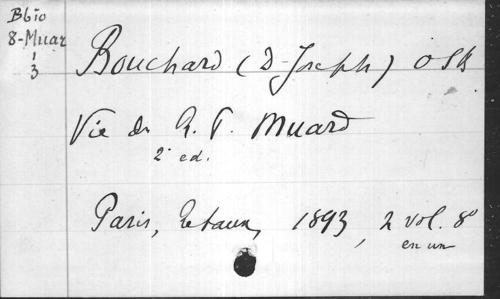 Bbio
8-Muar
1
3
Bouchard (D-Joseph) OSB
Vie du R. P. Muard
2e ed.
Paris, Retaux, 1893, 2 vol. 8o
en un